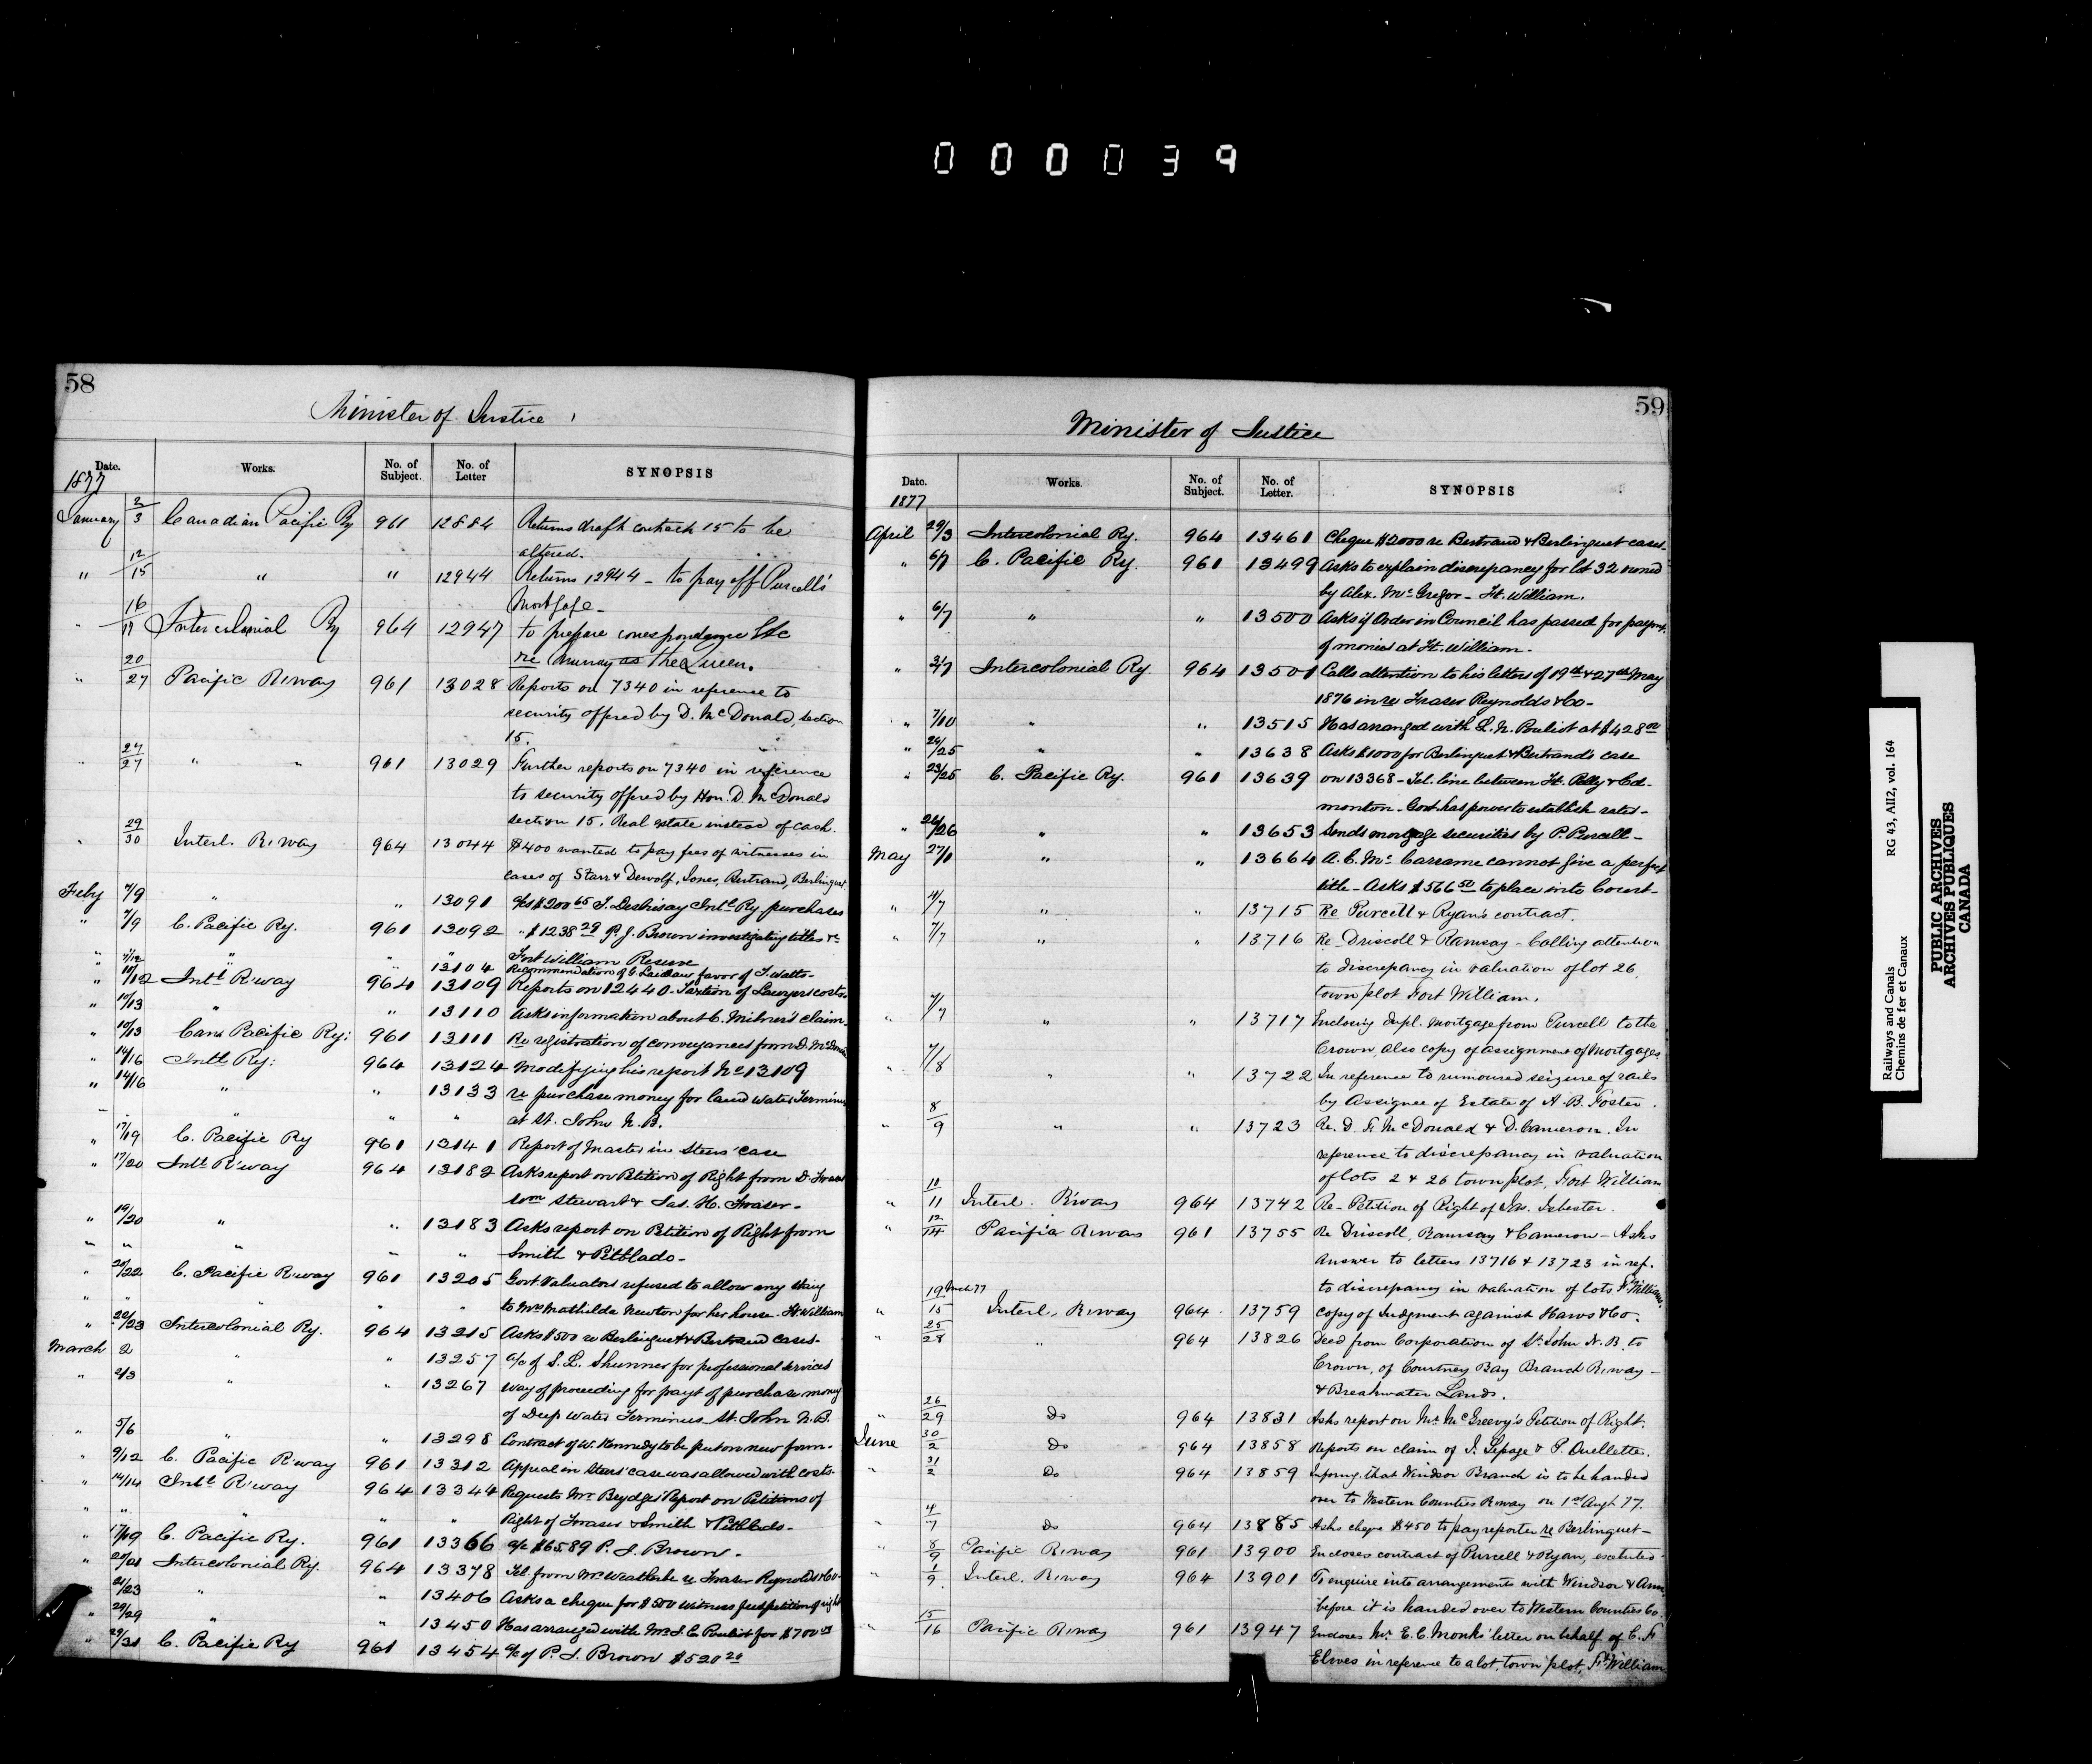 000039
58
Minister of Justice
Date. Works. No. of Subject. No. of Letter SYNOPSIS
1877
January 2/3 Canadian Pacific Ry 961 12884 Returns draft contract 15 to be
altered.
" 12/15 " " 12944 Returns 12944 - to pay off Purcell's
Mortgage -
" 16/17 Intercolonial Ry 964 12947 to prepare correspondence Etc
re Murray as The Queen.
" 20/27 Pacific R.way 961 13028 Reports on 7340 in reference to
security offered by D. McDonald, section
15.
" 24/27 " " 961 13029 Further reports on 7340 in reference
to security offered by Hon. D. McDonald
section 15. Real estate instead of cash.
" 29/30 Interl. R.way 964 13044 $400 wanted to pay fees of witnesses in
cases of Starr & Dewolf, Jones, Bertrand, Berlinguet
Feby 7/9 " " 13091 a/c $200 65 T. Desbrisay Intl Ry purchases
" 7/9 C. Pacific Ry. 961 13092 " $1238 29 P. J. Brown investigating titles &c
Fort William Reserve
" " " 13104 Recommendation of C. Laidlaw favor of T. Watts-
" 10/12 Intl R'way 964 13109 Reports on 12440 - Taxation of Lawyers costs.
" 10/13 " " 13110 Asks information about C. Milner's claim.
" 10/13 Cana Pacific Ry: 961 13111 Re registration of conveyances from D. McDonald
" 14/16 Intl Ry: 964 13124 Modifying his report No 13109
" 14/16 " " 13133 re purchase money for land water Terminus
" " " " at St. John N.B.
" 17/19 C. Pacific Ry 961 13141 Report of Master in Steers' case
" 17/20 Intl R'way 964 13182 Asks report on Petition of Right from D. Fraser
Wm Stewart & Jas. H. Fraser -
" 19/20 " " 13183 Asks report on Petition of Right from
" " " " " Smith & Pitblado -
" 20/22 C. Pacific R'way 961 13205 Govt Valuators refused to allow any thing
" " " " " to Mrs Mathilda Newton for her house - Ft William
" 22/23 Intercolonial Ry. 964 13215 Asks $500 re Berlinguet & Bertrand cases.
March 2 " " 13257 a/c of S. L. Shunner for professional services
" 2/3 " " 13267 Way of proceeding for payt of purchase money
of Deep Water Terminus St. John N.B.
" 5/6 " " 13298 Contract of W. Kennedy to be put on new form.
" 9/12 C. Pacific R'way 961 13312 Appeal in Steers' case was allowed with costs.
" 14/14 Intl R'way 964 13344 Requests Mr Brydges' Report on Petitions of
" " " " " Right of Fraser & Smith & Pitblado -
" 17/19 C. Pacific Ry. 961 13366 a/c $65.89 P. J. Brown.
" 20/21 Intercolonial Ry. 964 13378 Tel. from Mr Weatherbe re Fraser Reynolds & Co.
" 21/23 " " 13406 Asks a cheque for $500 witness fees petition of right
" 29/29 " " 13450 Has arranged with Mr J. C. Pouliot for $700
" 29/31 C. Pacific Ry 961 13454 a/c of P. J. Brown $520 20
59
Minister of Justice
Date. Works. No. of Subject. No. of Letter. SYNOPSIS
1877
April 29/3 Intercolonial Ry. 964 13461 Cheque $2000 re Bertrand & Berlinguet cases.
" 6/7 C. Pacific Ry. 961 13499 Asks to explain discrepancy for lot 32 owned
by Alex. McGregor - Ft. William.
" 6/7 " " 13500 Asks if Order in Council has passed for paymt.
of monies at Ft. William.
" 3/7 Intercolonial Ry. 964 13501 Calls attention to his letters of 19th & 27th May
1876 in re Fraser Reynolds & Co -
" 7/10 " " 13515 Has arranged with L. N. Pouliot at $428 00
" 24/25 " " 13638 Asks $1000 for Berlinguet & Bertrand's case
" 23/25 C. Pacific Ry. 961 13639 on 13368 - Tel. line between Ft. Pelly & Ed-
monton - Govt has power to establish rates -
" 26/26 " " 13653 Sends mortgage securities by P. Purcell -
May 27/1 " " 13664 A. C. Mc cannot give a perfect
title - Asks $566 50 to place into Court -
" 4/7 " " 13715 Re Purcell & Ryan's contract.
" 7/7 " " 13716 Re Driscoll & Ramsay - Calling attention
to discrepancy in valuation of lot 26,
town plot Fort William.
" 7/7 " " 13717 Enclosing dupl. mortgage from Purcell to the
Crown, also copy of assignment of Mortgages
" 7/8 " " 13722 In reference to rumoured seizure of rails
by Assignee of Estate of A. B. Foster.
" 8/9 " " 13723 Re. D. F. McDonald & D. Cameron. In
reference to discrepancy in valuation
of lots 2 & 26 town plot, Fort William
" 10/11 Interl. R'way 964 13742 Re - Petition of Right of Jas. Isbester.
" 12/14 Pacific R.way 961 13755 Re Driscoll, Ramsay & Cameron - Asks
Answer to letters 13716 & 13723 in ref.
to discrepancy in valuation of lots Ft William.
" 19 Mch 77/15 Interl. R.way 964 13759 Copy of Judgment against Haws & Co.
" 25/28 " 964 13826 Deed from Corporation of St. John N.B. to
Crown, of Courtney Bay Branch R.way -
& Breakwater Lands.
" 26/29 Do 964 13831 Asks report on Mr. McGreevy's Petition of Right.
June 30/2 Do 964 13858 Reports on claim of J. Lepage & P. Ouellette.
" 31/2 Do 964 13859 Informg. that Windsor Branch is to be handed
over to Western Counties R.way on 1st Augt 77.
" 4/7 Do 964 13885 Asks cheque $450 to pay reporter re Berlinguet -
" 8/9 Pacific R.way 961 13900 Encloses contract of Purcell & Ryan, executed -
" 1/9 Interl. R.way 964 13901 To enquire into arrangements with Windsor & Anna
before it is handed over to Western Counties Co.
" 15/16 Pacific R.way 961 13947 Encloses Mr. E. C. Monk's letter on behalf of C. F.
Elwes in reference to a lot, town plot, Ft William
Railways and Canals RG 43, AII2, vol. 164
Chemins de fer et Canaux
PUBLIC ARCHIVES
ARCHIVES PUBLIQUES
CANADA